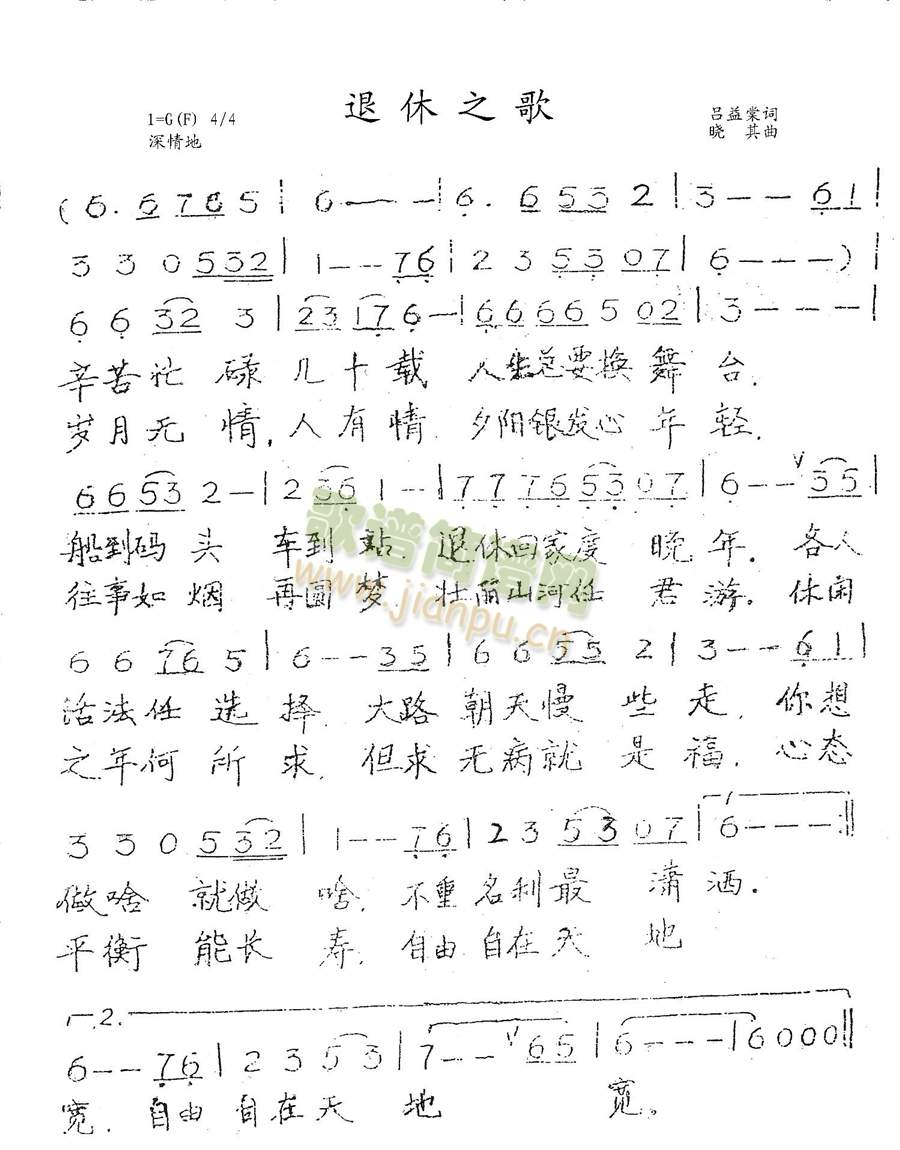 退休之歌
1=G(F) 4/4
深情地
吕益棠词
晓 其曲
(6. 6 7 6 5 | 6 — — | 6. 6 5 3 2 | 3 — — 6 1 |
3 3 0 5 3 2 | 1 — — 7 6 | 2 3 5 3 0 7 | 6 — — — ) |
6 6 3 2 3 | 2 3 1 7 6 — | 6 6 6 6 5 0 2 | 3 — — — |
辛苦忙 碌 几 十 载 人生总要换 舞 台.
岁月无 情, 人有情 夕阳银发心 年 轻.
6 6 5 3 2 — | 2 3 6 1 — — | 7 7 7 6 5 3 0 7 | 6 — — V 3 5 |
船到码 头 车到 站 退休回家度 晚 年. 各人
往事如 烟 再圆 梦 壮丽山河任 君 游. 休闲
6 6 7 6 5 | 6 — — 3 5 | 6 6 5 5 2 | 3 — — 6 1 |
活法任 选 择. 大路 朝天慢 些 走. 你想
之年何 所 求. 但求 无病就 是 福. 心态
3 3 0 5 3 2 | 1 — — 7 6 | 2 3 5 3 0 7 | 1 6 — — — :||
做啥 就做 啥. 不重 名利最 潇 洒.
平衡 能长 寿. 自由 自在天 地
2.
6 — — 7 6 | 2 3 5 3 | 7 — — V 6 5 | 6 — — — | 6 0 0 0 ||
宽. 自由 自在天 地 宽。
歌谱简谱网
www.jianpu.cn